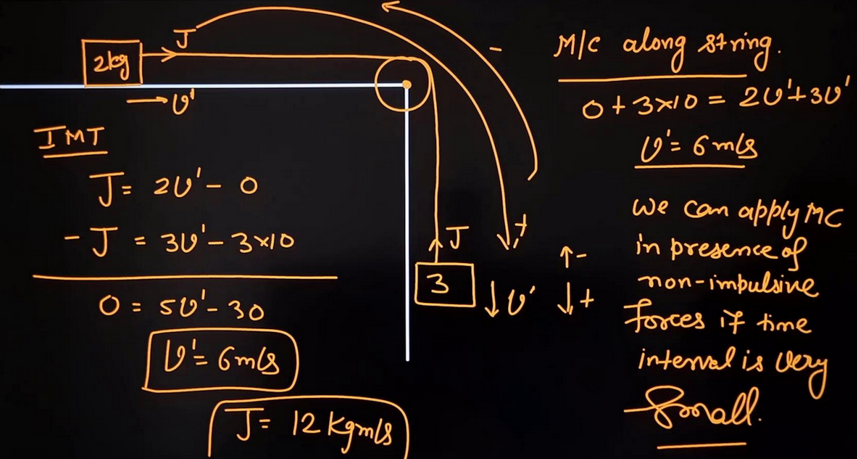 2kg
J
→ υ'
IMT
J = 2υ' - 0
- J = 3υ' - 3×10
0 = 5υ' - 30
υ' = 6m/s
J = 12 kgm/s
-
+
J
3
↓ υ'
↑ -
↓ +
M/C along string.
0 + 3×10 = 2υ' + 3υ'
υ' = 6 m/s
We can apply MC
in presence of
non-impulsive
forces if time
interval is very
small.